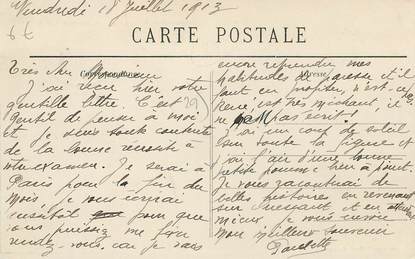 Vendredi 18 Juillet 1913
6 t
CARTE POSTALE
Correspondance
Adresse
Très cher Monsieur
J'ai reçu hier votre
gentille lettre. C'est
gentil de penser à moi
et je suis toute contente
de la bonne réussite à
votre examen. Je serai à
Paris pour la fin du
mois. Je vous écrirai
aussitôt pour que
vous puissiez me fixer
rendez-vous. car je vais
encore reprendre mes
habitudes de paresse et il
faut en profiter, n'est-ce
René est très méchant, il
ne m'a pas écrit!
J'ai un coup de soleil
sur toute la figure et
j'ai l'air d'une bonne
petite pomme
Je vous raconterai de
belles histoires en revenant
et en attendant
mieux je vous envoie
mon meilleur souvenir
Paulette